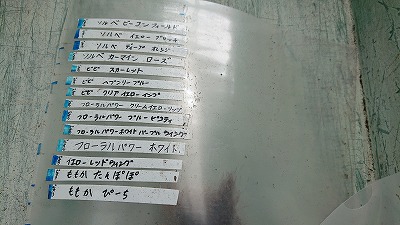 ソルベ ビーコンフィールド
ソルベ イエロー ブロッチ
ソルベ ディープ オレンジ
ソルベ カーマイン ローズ
ビビ スカーレット
ビビ ヘブンリーブルー
ビビ クリアイエローインプ
フローラルパワー クリームイエローリップ
フローラルパワー ブルー ビコティ
フローラルパワーホワイトパープルウイング
フローラルパワー ホワイト
イエローレッドウィング
ももか たんぽぽ
ももか ぴーち